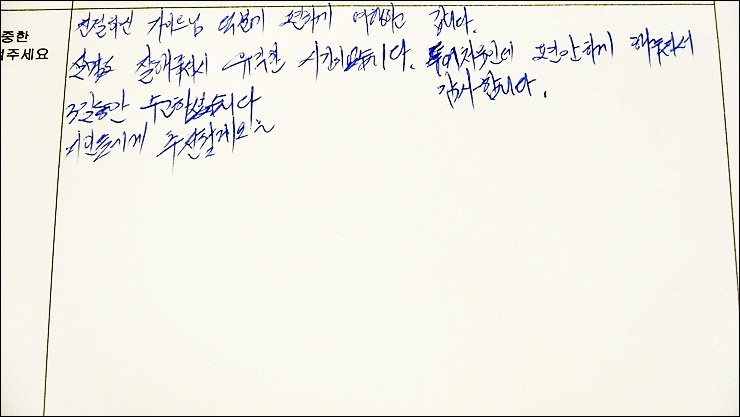 중한
겨주세요
친절하신 가이드님 덕분에 편하게 여행하고 갑니다.
설명도 잘해주셔서 유익한 시간이었습니다. 투어처음인데 편안하게 해주셔서
감사합니다.
3일동안 수고하셨습니다
지인들에게 추천할게요^^